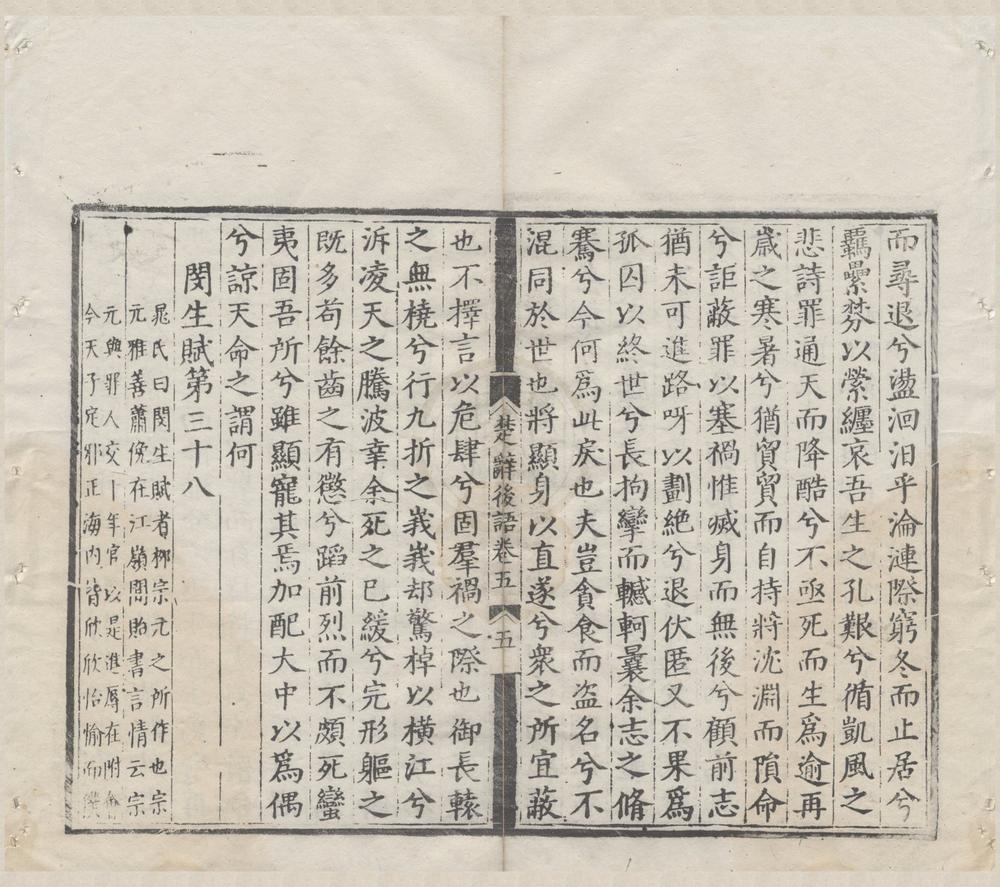 而尋退兮盪洄汩乎淪漣際窮冬而止居兮
羈纍棼以縈纏哀吾生之孔艱兮循凱風之
悲詩罪通天而降酷兮不亟死而生爲逾再
歲之寒暑兮猶貿貿而自持將沈淵而隕命
兮詎蔽罪以塞禍惟滅身而無後兮顧前志
猶未可進路呀以劃絕兮退伏匿又不果爲
孤囚以終世兮長拘攣而轗軻曩余志之脩
騫兮今何爲此戾也夫豈貪食而盜名兮不
混同於世也將顯身以直遂兮衆之所宜蔽
楚辭後語卷五
五
也不擇言以危肆兮固羣禍之際也御長轅
之無橈兮行九折之峩峩却驚棹以橫江兮
泝凌天之騰波幸余死之已緩兮完形軀之
既多苟餘齒之有懲兮蹈前烈而不頗死蠻
夷固吾所兮雖顯寵其焉加配大中以爲偶
兮諒天命之謂何
閔生賦第三十八
晁氏曰閔生賦者栁宗元之所作也宗
元雅善蕭俛在江嶺間貽書言情云宗
元與罪人交十年官以是進辱在附會
今天子定邪正海内皆欣欣怡愉而僕